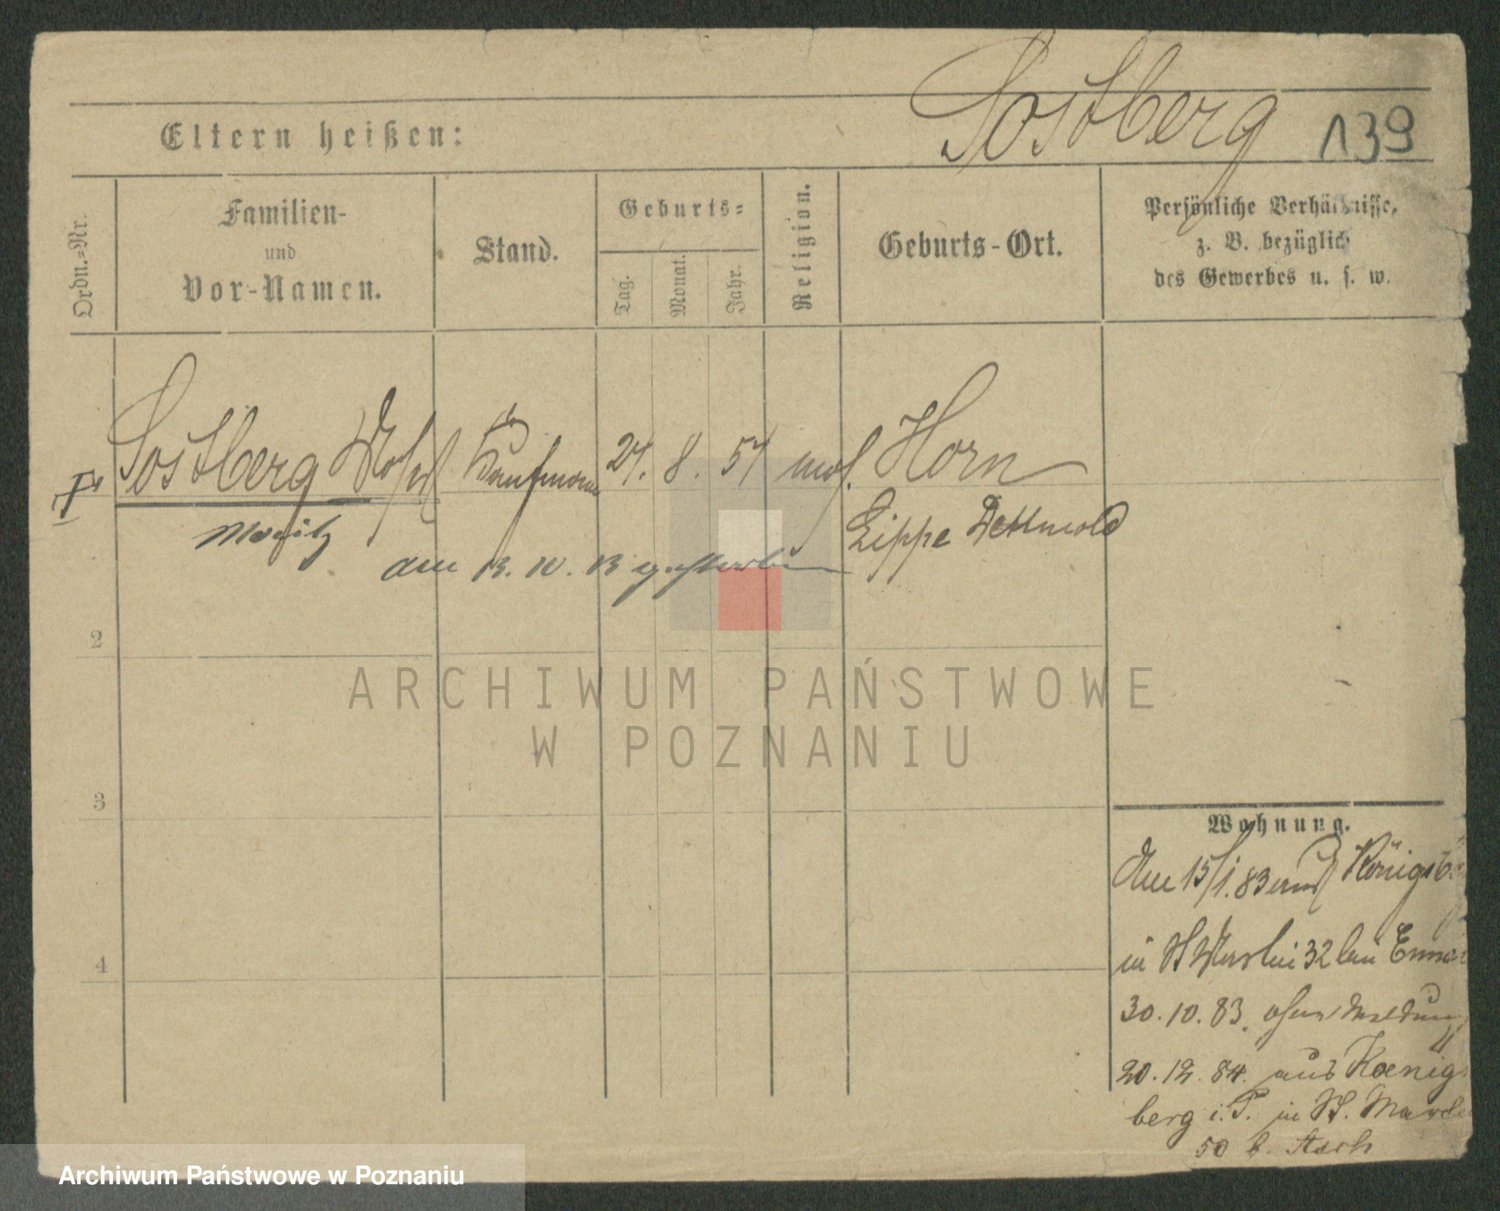 Sostberg 139
Eltern heißen:
Ordn.-Nr.
Familien-
und
Vor-Namen.
Stand.
Geburts-
Tag.
Monat.
Jahr.
Religion.
Geburts-Ort.
Persönliche Verhältnisse,
z. B. bezüglich
des Gewerbes u. s. w.
Sostberg Kaufmann 27. 8. 57 mos. Horn
Moritz
Lippe Dettmold
am 13. 10. 13 gestorben
2
3
4
Wohnung.
Am 15/1. 83 aus Königsbe
in St Martin 32 bei
30. 10. 83. ohne Meldung
20. 12. 84. aus Koenigs
berg i. P. in St. Martin
50 b. Asch
ARCHIWUM PAŃSTWOWE
W POZNANIU
Archiwum Państwowe w Poznaniu